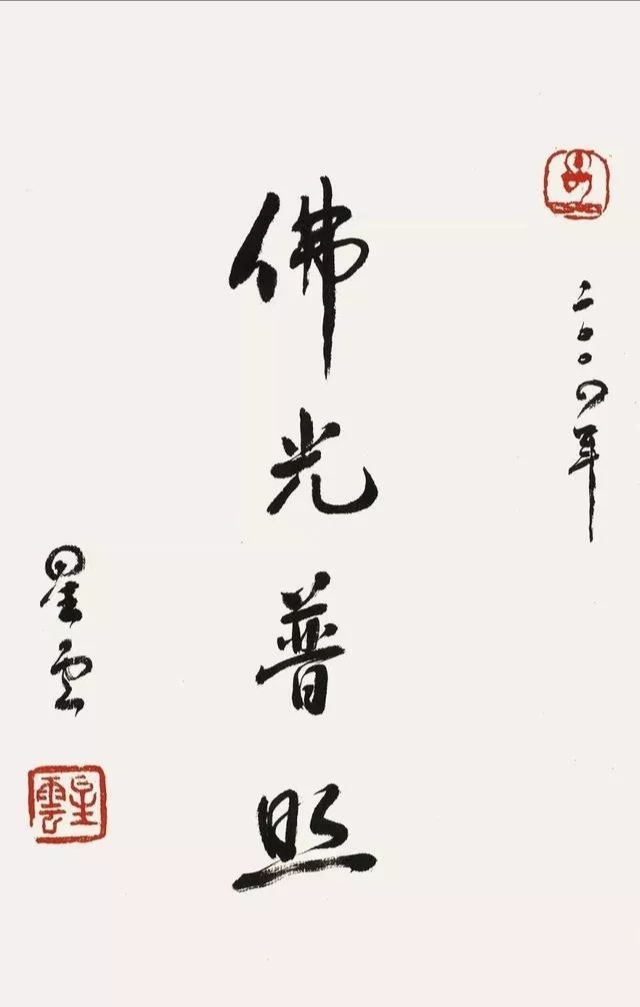 二〇〇四年
佛光普照
星雲
星雲